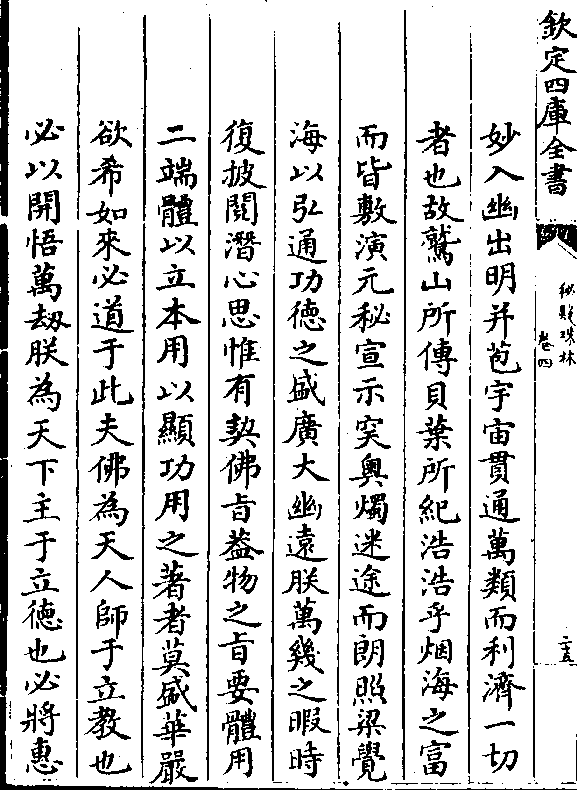 欽定四庫全書
秘殿珠林
卷四
二十五
妙入幽出明并苞宇宙貫通萬類而利濟一切
者也故鷲山所傳貝葉所紀浩浩乎烟海之富
而皆敷演元秘宣示突奧燭迷途而朗照梁覺
海以弘通功德之盛廣大幽遠朕萬幾之暇時
復披閱潛心思惟有契佛旨葢物之旨要體用
二端體以立本用以顯功用之著者莫盛華嚴
欲希如來必道于此夫佛為天人師于立教也
必以開悟萬劫朕為天下主于立德也必將惠